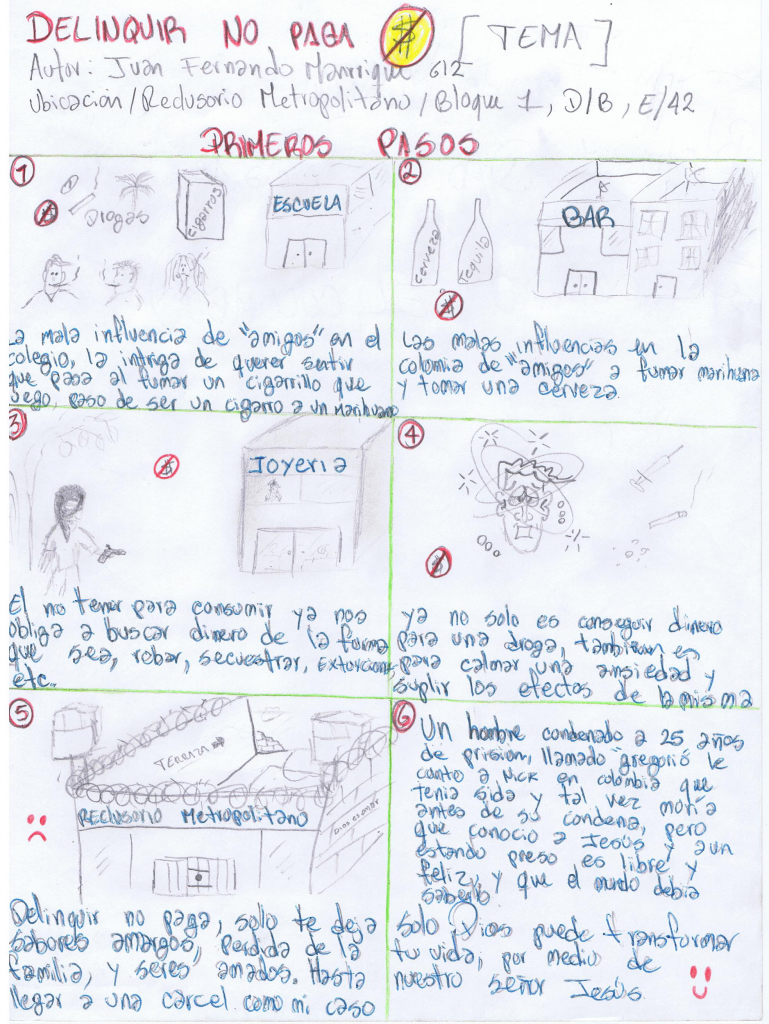 DELINQUIR NO PAGA $ [TEMA]
Autor: Juan Fernando Manrique 612
Ubicación/Reclusorio Metropolitano/Bloque 1, D/B, E/42
PRIMEROS PASOS
1
$ Drogas
cigarros
ESCUELA
La mala influencia de "amigos" en el
colegio, la intriga de querer sentir
que pasa al fumar un cigarrillo que
luego, paso de ser un cigarro a un Marihuano
2
cerveza
Tequila
BAR
$
Las malas influencias en la
colomia de "amigos" a fumar marihuana
y tomar una cerveza.
3
$
Joyeria
El no tener para consumir ya nos
obliga a buscar dinero de la forma
que sea, robar, secuestrar, extorcionar,
etc.
4
$
ya no solo es conseguir dinero
para una droga, tambien es
para calmar una ansiedad y
suplir los efectos de la misma
5
TERRAZA
RECLUSORIO Metropolitano
Dios es amor
Delinquir no paga, solo te deja
sabores amargos, perdida de la
familia, y seres amados. Hasta
llegar a una carcel. como mi caso
6
Un hombre condenado a 25 años
de prision, llamado "gregorio" le
conto a Mck en colombia que
tenia sida y tal vez moria
antes de su condena, pero
que conocio a Jesús y aun
estando preso es libre y
feliz, y que el mundo debia
saberlo.
solo Dios puede transformar
tu vida, por medio de
nuestro señor Jesús.